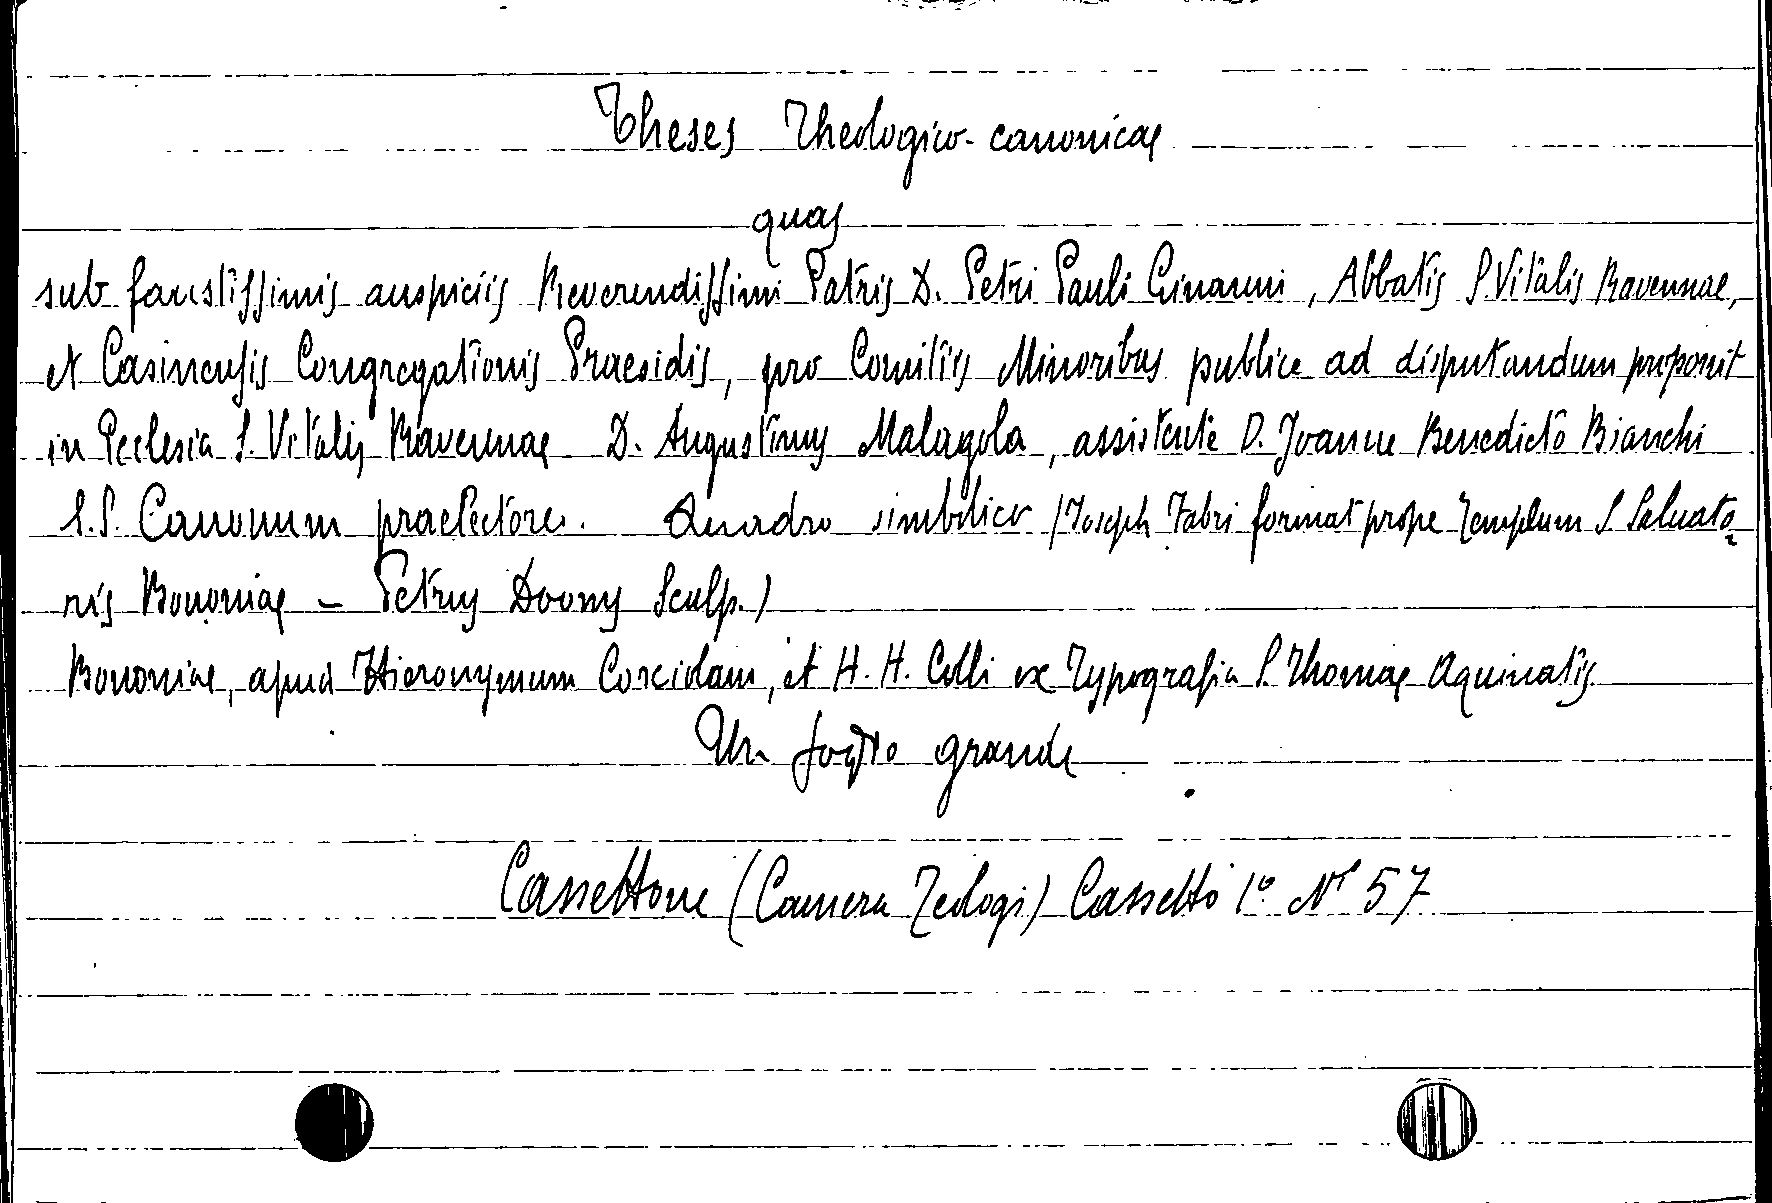 Theses Theologico-canonicae
quas
sub faustissimis auspiciis Reverendissimi Patris D. Petri Pauli Ginanni, Abbatis S. Vitalis Ravennae,
et Casinensis Congregationis Praesidis, pro Comitiis Minoribus publice ad disputandum proponit
in Ecclesia S. Vitalis Ravennae D. Augustinus Malagola, assistente D. Joanne Benedicto Bianchi
S.S. Canonum praelectore. Quadro simbolico (Joseph Fabri format prope Templum S. Salvato=
ris Bononiae - Petrus Doony Sculp.)
Bononiae, apud Hieronymum Corciolani, et H. H. Colli ex Typografia S. Thomae Aquinatis
Un foglio grande
Cassettone (Camera Teologi) Cassetto 1º Nº 57